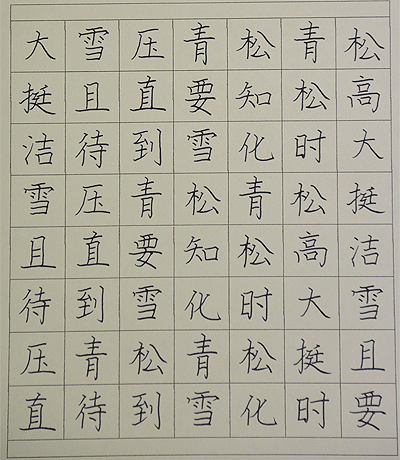 大雪压青松青松
挺且直要知松高
洁待到雪化时大
雪压青松青松挺
且直要知松高洁
待到雪化时大雪
压青松青松挺且
直待到雪化时要